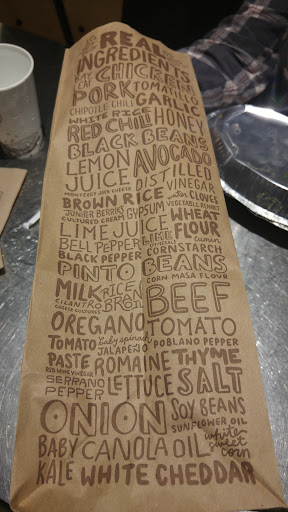 REAL
INGREDIENTS
BAY LEAF CHICKEN
PORK TOMATILLO
CHIPOTLE CHILI GARLIC
WHITE RICE HONEY
RED CHILI
BLACK BEANS
LEMON JUICE AVOCADO
MONTEREY JACK CHEESE DISTILLED VINEGAR
BROWN RICE WATER CLOVES
JUNIPER BERRIES GYPSUM VEGETABLE RENNET
CULTURED CREAM WHEAT FLOUR
LIME JUICE LIME
BELL PEPPER cumin
BLACK PEPPER CORNSTARCH
PINTO BEANS
MILK RICE BRAN OIL CORN MASA FLOUR
CILANTRO BEEF
CHEESE CULTURES
OREGANO TOMATO
TOMATO PASTE baby spinach POBLANO PEPPER
JALAPEÑO
RED WINE VINEGAR ROMAINE LETTUCE THYME
SERRANO PEPPER SALT
ONION SOY BEANS
SUNFLOWER OIL
BABY KALE CANOLA OIL white sweet corn
WHITE CHEDDAR